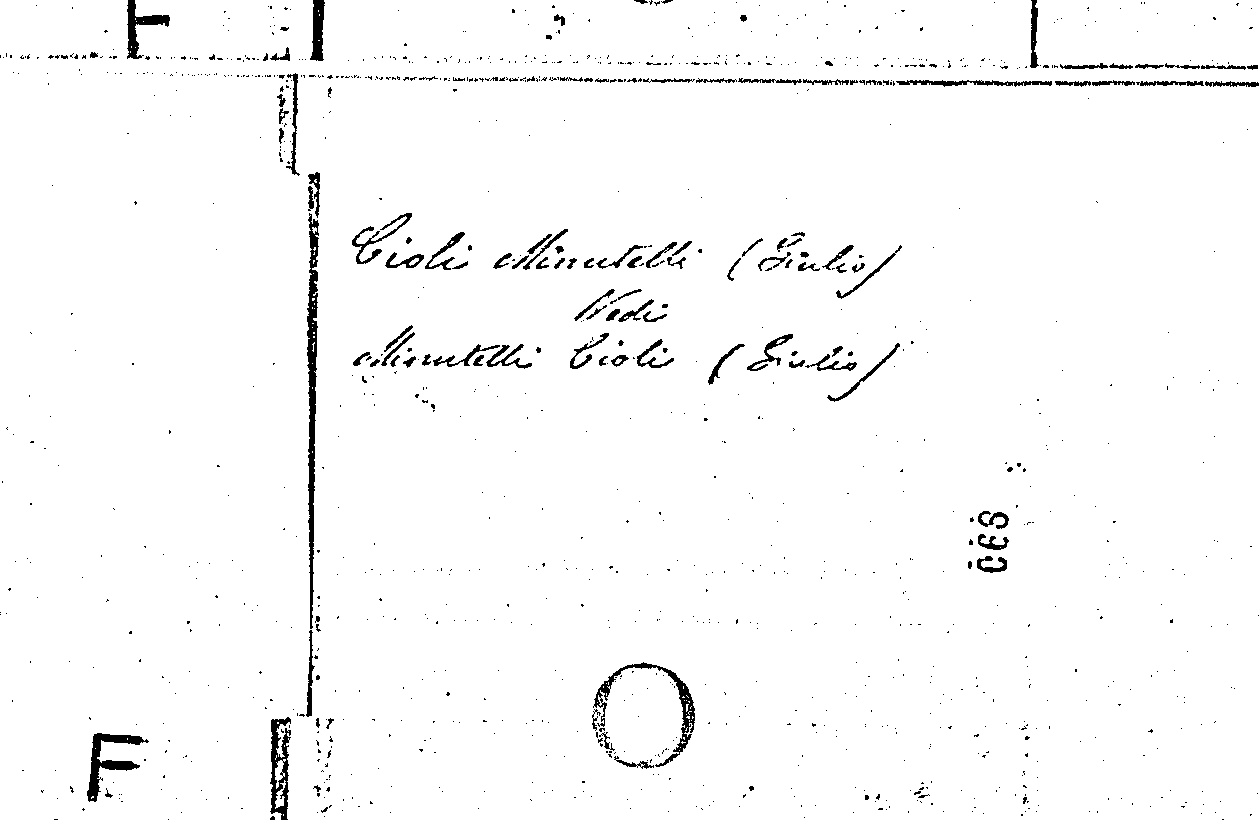 Cioli Minutelli (Giulio)
Vedi
Minutelli Cioli (Giulio)
F